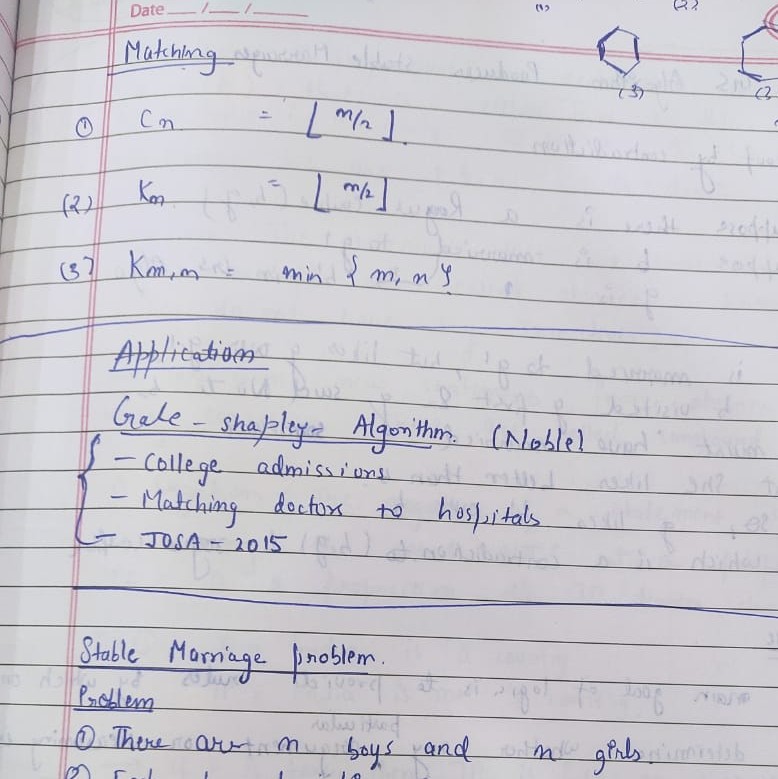 Date __/__/__
(1) (2)
(3) (3
Matching
① Cn = ⌊n/2⌋.
(2) Kn = ⌊n/2⌋
(3) Km,n = min {m, n}
Application
Gale - shapley Algorithm. (Noble)
- College admissions
- Matching doctors to hospitals
- JOSA - 2015
Stable Marriage problem.
Problem
① There are n boys and n girls.